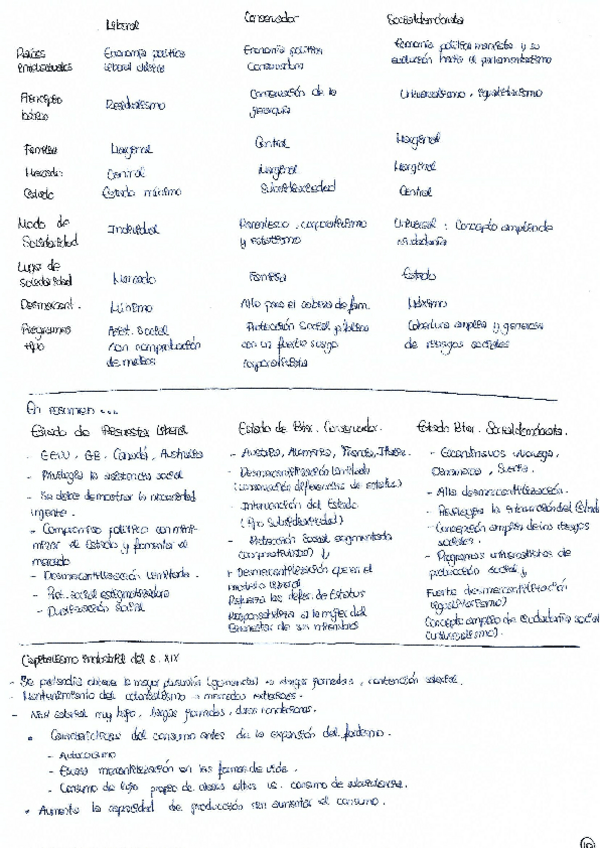 Liberal Conservador Socialdemócrata
Raíces Economía política Economía política Economía política marxista y su
intelectuales liberal clásica Conservadora evolución hacia el parlamentarismo
Principio Residualismo Conservación de la Universalismo, igualitarismo
básico jerarquía
Familia Marginal Central Marginal
Mercado Central Marginal Marginal
Estado Estado mínimo Subsidiariedad Central
Modo de Individual Parentesco, corporativismo Universal: Concepto amplio de
Solidaridad y estatismo ciudadanía
Lugar de Mercado Familia Estado
solidaridad
Desmercant. Mínimo Alto para el cabeza de fam. Máximo
Programas Asist. Social Protección Social pública Cobertura amplia y generosa
tipo con comprobación con un fuerte sesgo de riesgos sociales
de medios corporativista
En resumen ...
Estado de Bienestar Liberal
- EEUU, GB, Canadá, Australia
- Privilegia la asistencia social
- Se debe demostrar la necesidad
- Compromiso político con mini-
mizar el Estado y fomentar el
mercado
- Desmercantilización limitada.
- Prot. social estigmatizadora
- Dualización Social
Estado de Bien. Conservador.
- Austria, Alemania, Francia, Italia.
- Desmercantilización limitada
(conservación diferencias de estatus)
- Intervención del Estado
(Ppo Subsidiariedad)
- Protección Social segmentada
(corporativismo) ↓
+ Desmercantilización que en el
modelo liberal
Refuerza las difer. de Estatus
Responsabiliza a la mujer del
Bienestar de sus miembros
Estado Bien. Socialdemócrata.
- Escandinavos Noruega,
Dinamarca, Suecia.
- Alta desmercantilización.
- Privilegia la intervención del Estado
- Concepción amplia de los riesgos
sociales.
- Programas universalistas de
protección social ↓
Fuerte desmercantilización
(igualitarismo)
Concepto amplio de Ciudadanía social
(universalismo).
Capitalismo industrial del s. XIX
- Se pretendía obtener la mayor plusvalía (ganancia) → largas jornadas, contención salarial.
- Mantenimiento del colonialismo → mercados exteriores.
- Nivel salarial muy bajo, largas jornadas, duras condiciones.
• Características del consumo antes de la expansión del fordismo.
- Autoconsumo
- Escasa mercantilización en las formas de vida.
- Consumo de lujo propio de clases altas vs. consumo de subsistencia.
• Aumenta la capacidad de producción sin aumentar el consumo.